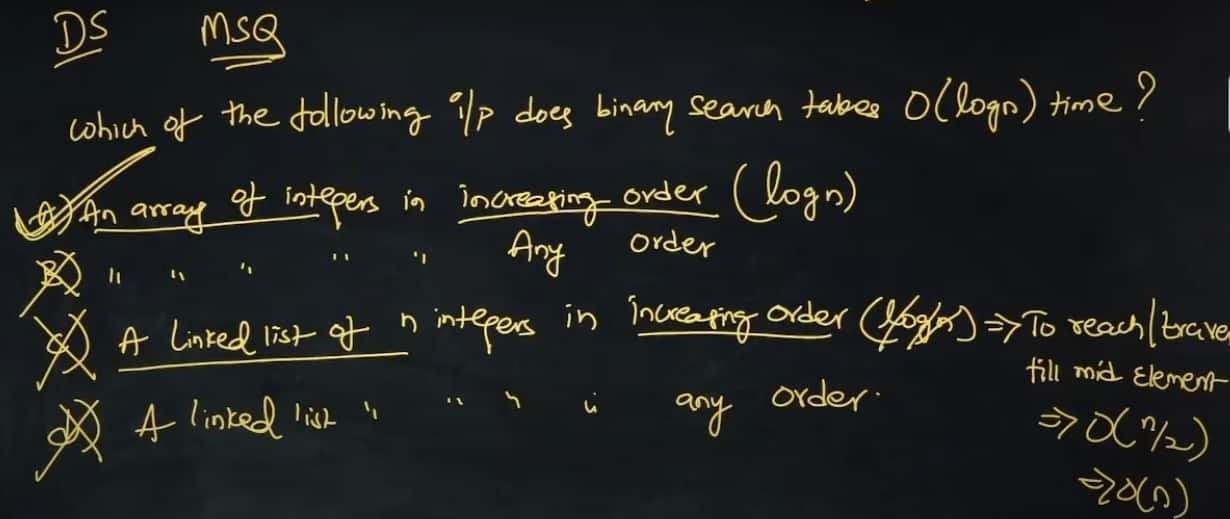 DS MSQ
Which of the following i/p does binary search takes O(logn) time?
A) An array of integers in increasing order (logn)
B) " " " " " Any order
C) A Linked list of n integers in increasing order (logn) => To reach/trave
till mid Element
d) A linked list " " " " any order.
=> O(n/2)
=> O(n)